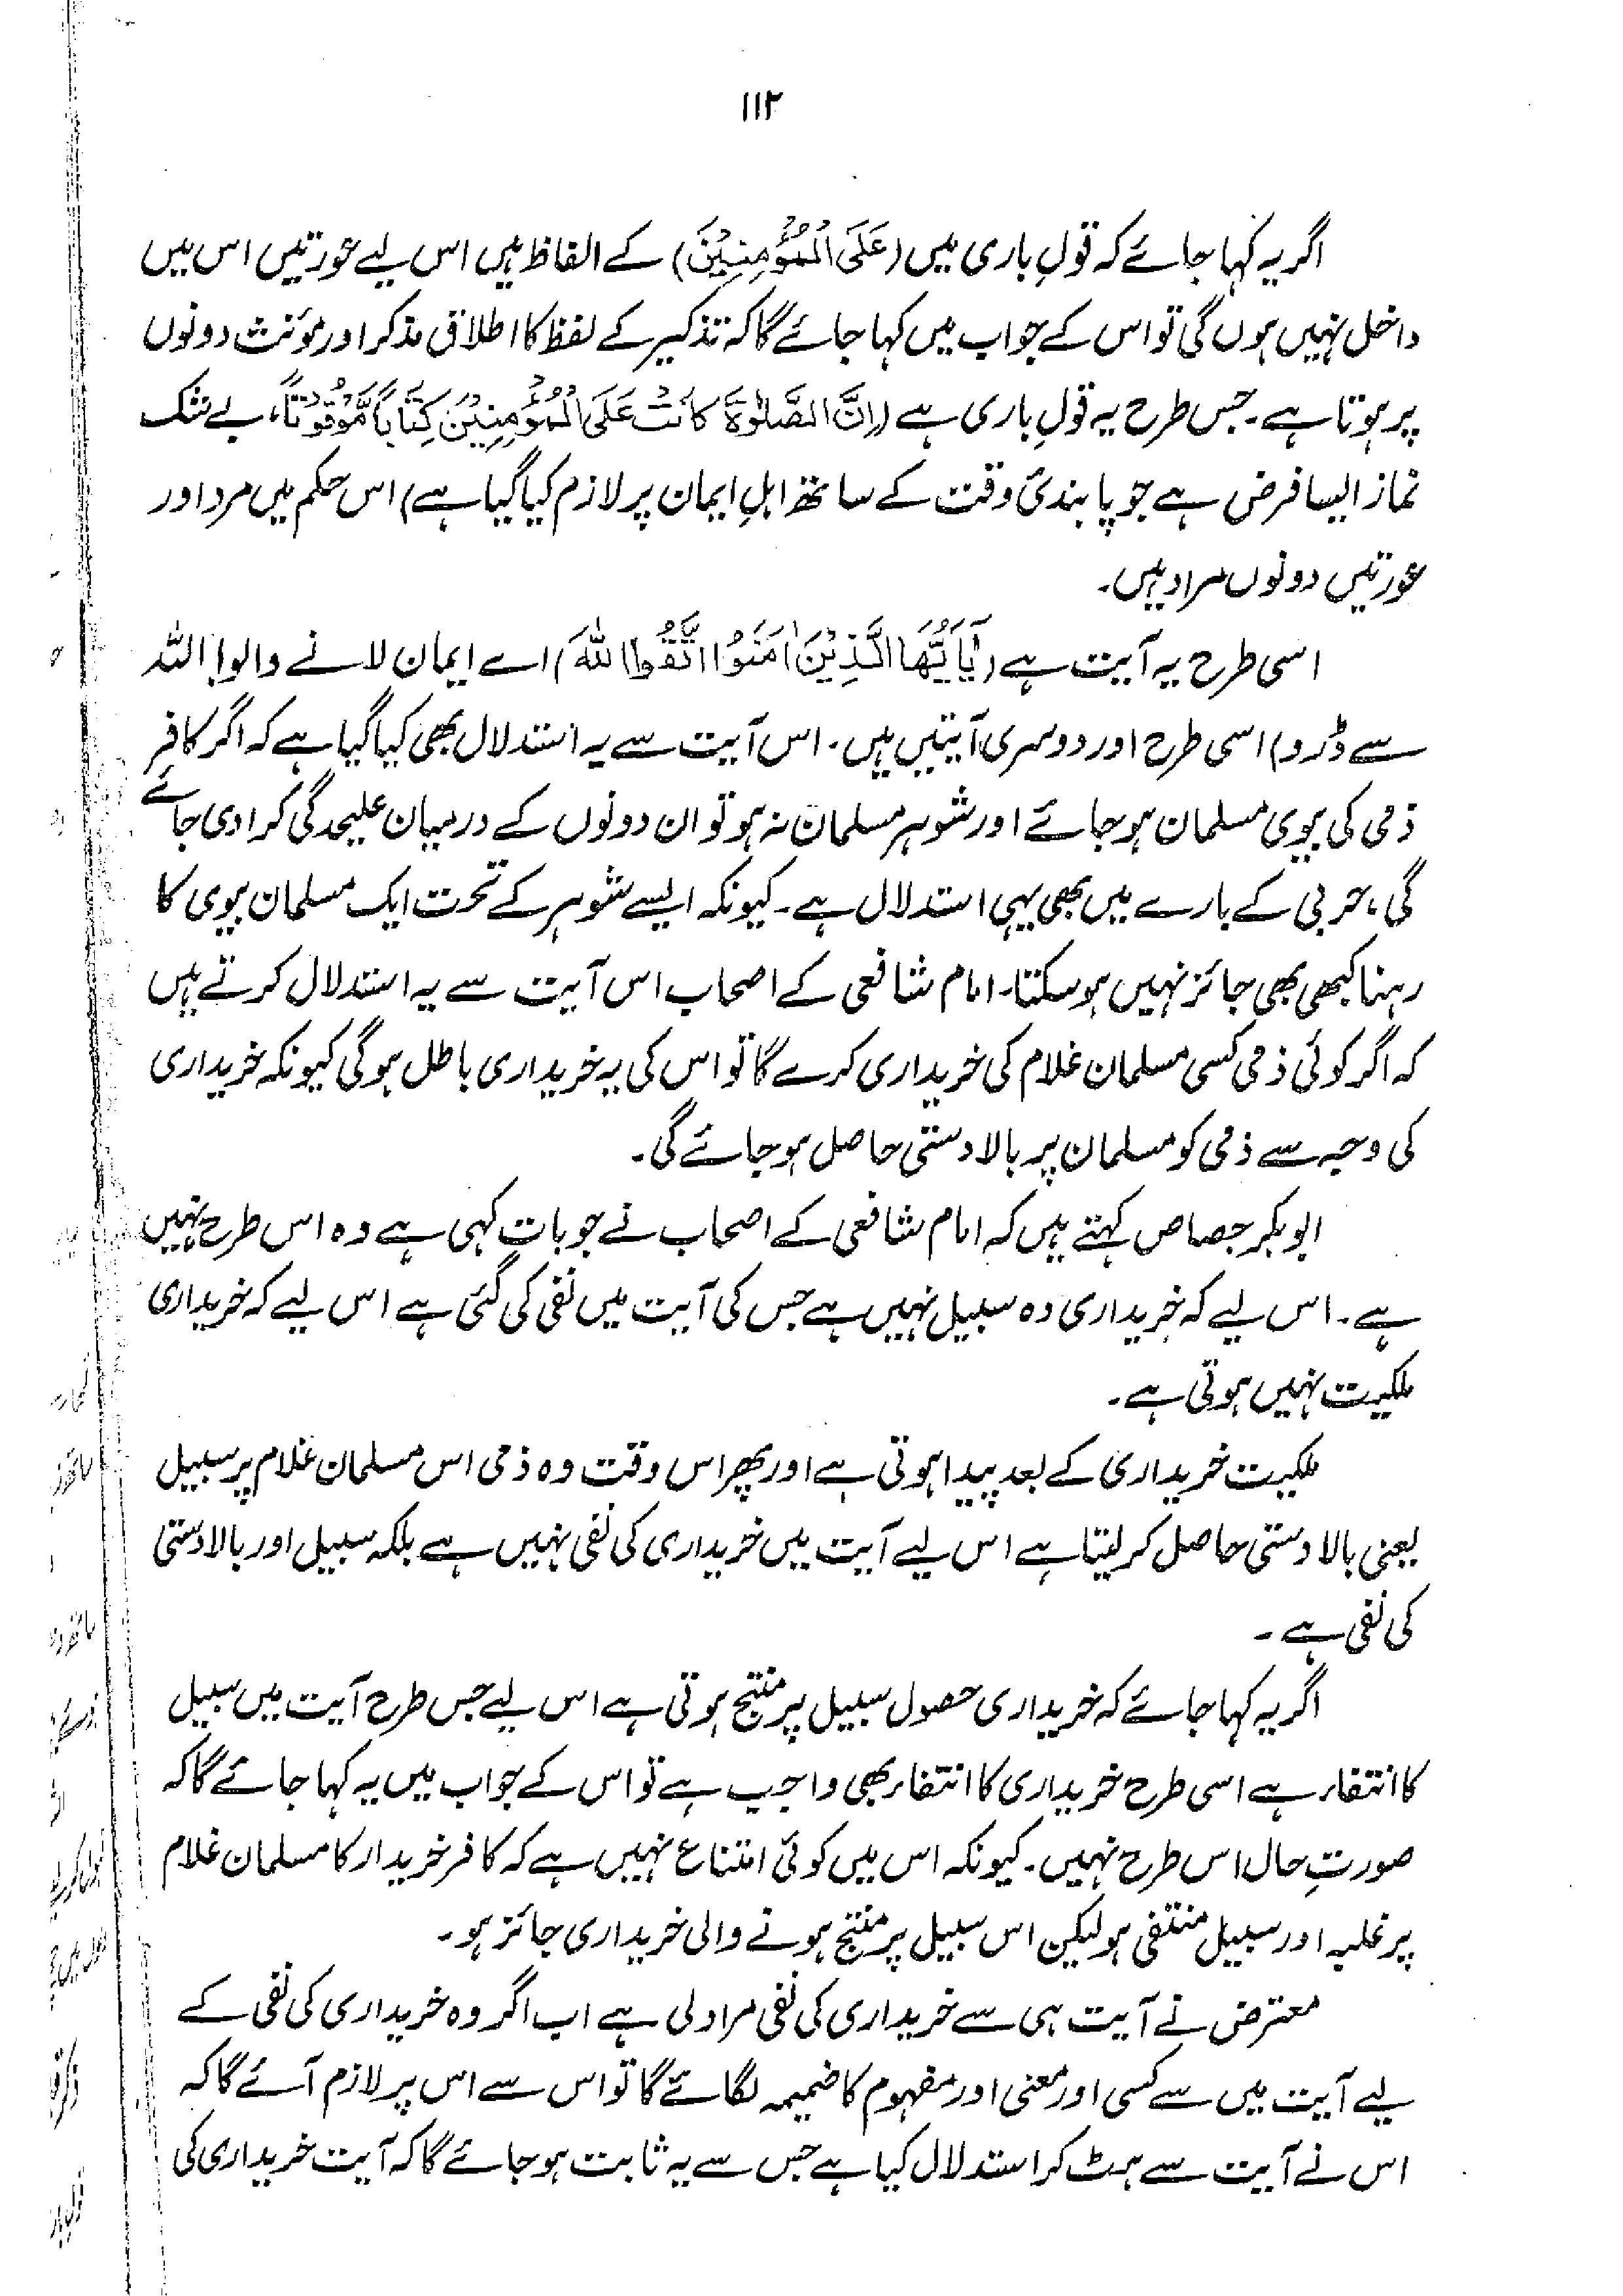 ۱۱۲
اگر یہ کہا جائے کہ قولِ باری میں (عَلَى الْمُؤْمِنِيْنَ) کے الفاظ ہیں اس لیے عورتیں اس میں
داخل نہیں ہوں گی تو اس کے جواب میں کہا جائے گا کہ تذکیر کے لفظ کا اطلاق مذکر اور مؤنث دونوں
پر ہوتا ہے۔ جس طرح یہ قولِ باری ہے (اِنَّ الصَّلٰوةَ كَانَتْ عَلَى الْمُؤْمِنِيْنَ كِتَابًا مَّوْقُوْتًا، بے شک
نماز ایسا فرض ہے جو پابندئ وقت کے ساتھ اہلِ ایمان پر لازم کیا گیا ہے) اس حکم میں مرد اور
عورتیں دونوں مراد ہیں۔
اسی طرح یہ آیت ہے (يَآ اَيُّهَا الَّذِيْنَ اٰمَنُوا اتَّقُوا اللّٰهَ) اے ایمان لانے والو! اللہ
سے ڈرو) اسی طرح اور دوسری آیتیں ہیں۔ اس آیت سے یہ استدلال بھی کیا گیا ہے کہ اگر کافر
ذمی کی بیوی مسلمان ہوجائے اور شوہر مسلمان نہ ہو تو ان دونوں کے درمیان علیحدگی کرا دی جائے
گی، حربی کے بارے میں بھی یہی استدلال ہے۔ کیونکہ ایسے شوہر کے تحت ایک مسلمان بیوی کا
رہنا کبھی بھی جائز نہیں ہوسکتا۔ امام شافعی کے اصحاب اس آیت سے یہ استدلال کرتے ہیں
کہ اگر کوئی ذمی کسی مسلمان غلام کی خریداری کرے گا تو اس کی یہ خریداری باطل ہوگی کیونکہ خریداری
کی وجہ سے ذمی کو مسلمان پر بالادستی حاصل ہوجائے گی۔
ابوبکر جصاص کہتے ہیں کہ امام شافعی کے اصحاب نے جو بات کہی ہے وہ اس طرح نہیں
ہے۔ اس لیے کہ خریداری وہ سبیل نہیں ہے جس کی آیت میں نفی کی گئی ہے اس لیے کہ خریداری
ملکیت نہیں ہوتی ہے۔
ملکیت خریداری کے بعد پیدا ہوتی ہے اور پھر اس وقت وہ ذمی اس مسلمان غلام پر سبیل
یعنی بالادستی حاصل کرلیتا ہے اس لیے آیت میں خریداری کی نفی نہیں ہے بلکہ سبیل اور بالادستی
کی نفی ہے۔
اگر یہ کہا جائے کہ خریداری حصول سبیل پر منتج ہوتی ہے اس لیے جس طرح آیت میں سبیل
کا انتفاء ہے اسی طرح خریداری کا انتفاء بھی واجب ہے تو اس کے جواب میں یہ کہا جائے گا کہ
صورتِ حال اس طرح نہیں۔ کیونکہ اس میں کوئی امتناع نہیں ہے کہ کافر خریدار کا مسلمان غلام
پر غلبہ اور سبیل منتفی ہو لیکن اس سبیل پر منتج ہونے والی خریداری جائز ہو۔
معترض نے آیت ہی سے خریداری کی نفی مراد لی ہے اب اگر وہ خریداری کی نفی کے
لیے آیت میں سے کسی اور معنی اور مفہوم کا ضمیمہ لگائے گا تو اس سے اس پر لازم آئے گا کہ
اس نے آیت سے ہٹ کر استدلال کیا ہے جس سے یہ ثابت ہوجائے گا کہ آیت خریداری کی